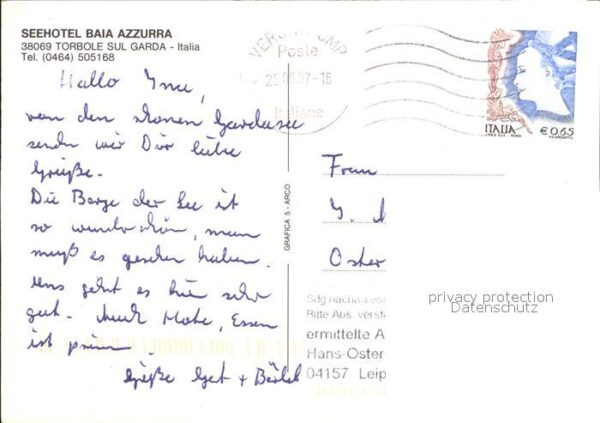 SEEHOTEL BAIA AZZURRA
38069 TORBOLE SUL GARDA - Italia
Tel. (0464) 505168
Poste
Italiane
ITALIA
€ 0,65
Hallo
von den schönen Gardasee
senden wir Dir liebe
Grüße.
Die Berge der See ist
so wunderschön, man
muß es gesehen haben.
Uns geht es hier sehr
gut. Auch Hotel, Essen
ist prima.
Grüße + Bärbel
GRAFICA 5 - ARCO
Frau
Oster
Sdg nachaures
Bitte Abs. verstä
ermittelte A
Hans-Oster
04157 Leip
privacy protection
Datenschutz